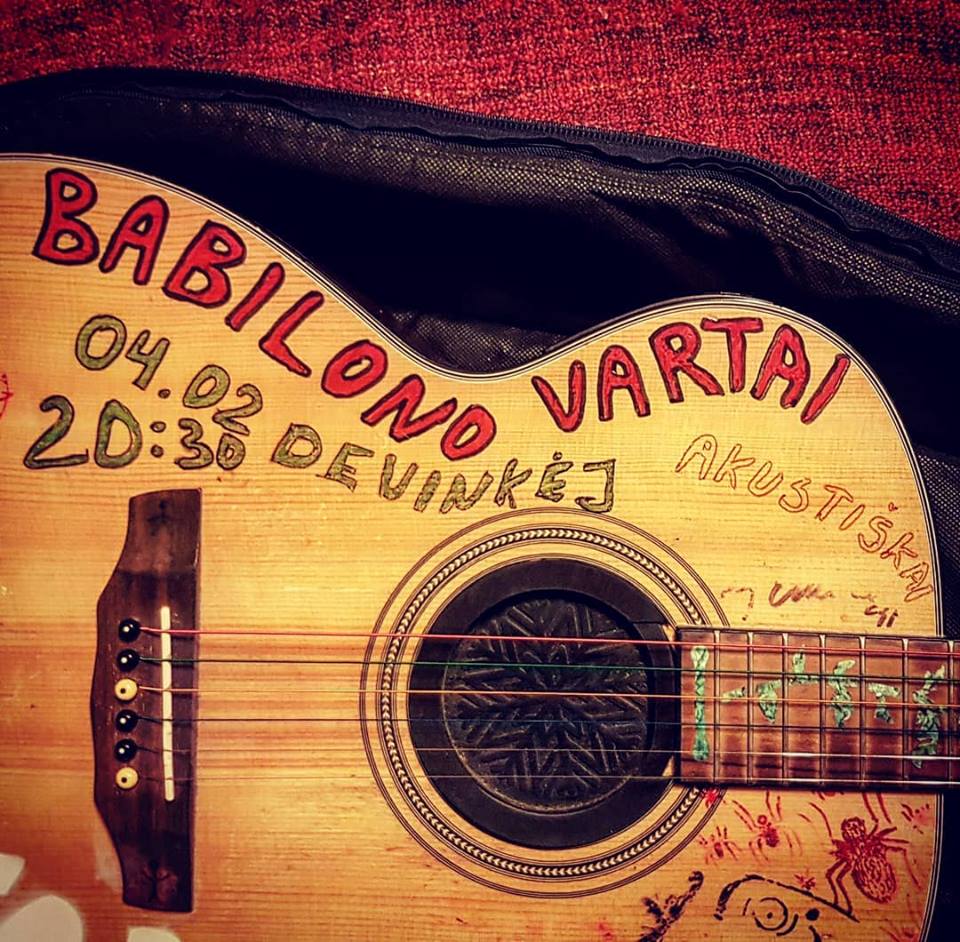 BABILONO VARTAI
04.02
20:30 DEVINKĖJ
AKUSTIŠKAI